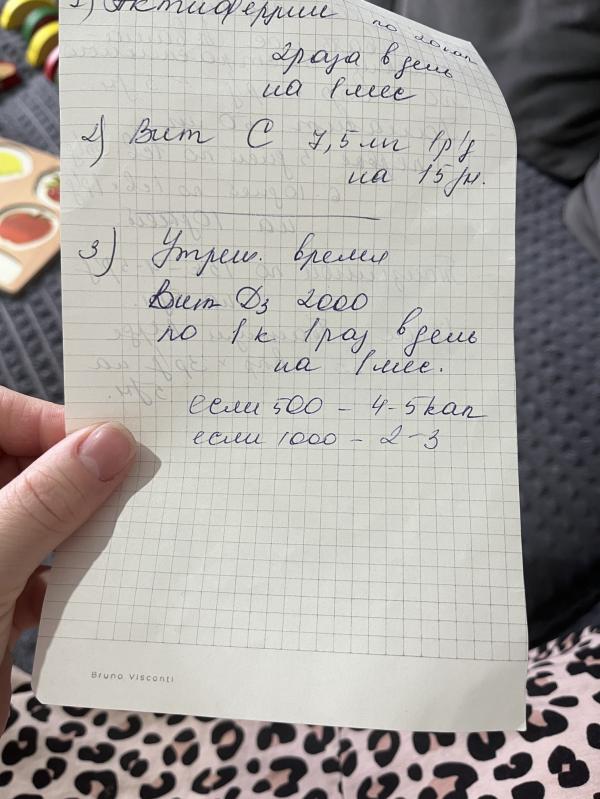 1) Актиферрин по 20кап
2 раза в день
на 1 мес
2) Вит С 7,5 мл 1р/д
на 15 дн.
3) Утрен. время
Вит Д3 2000
по 1 к 1 раз в день
на 1 мес.
если 500 – 4-5 кап
если 1000 – 2-3
Bruno Visconti